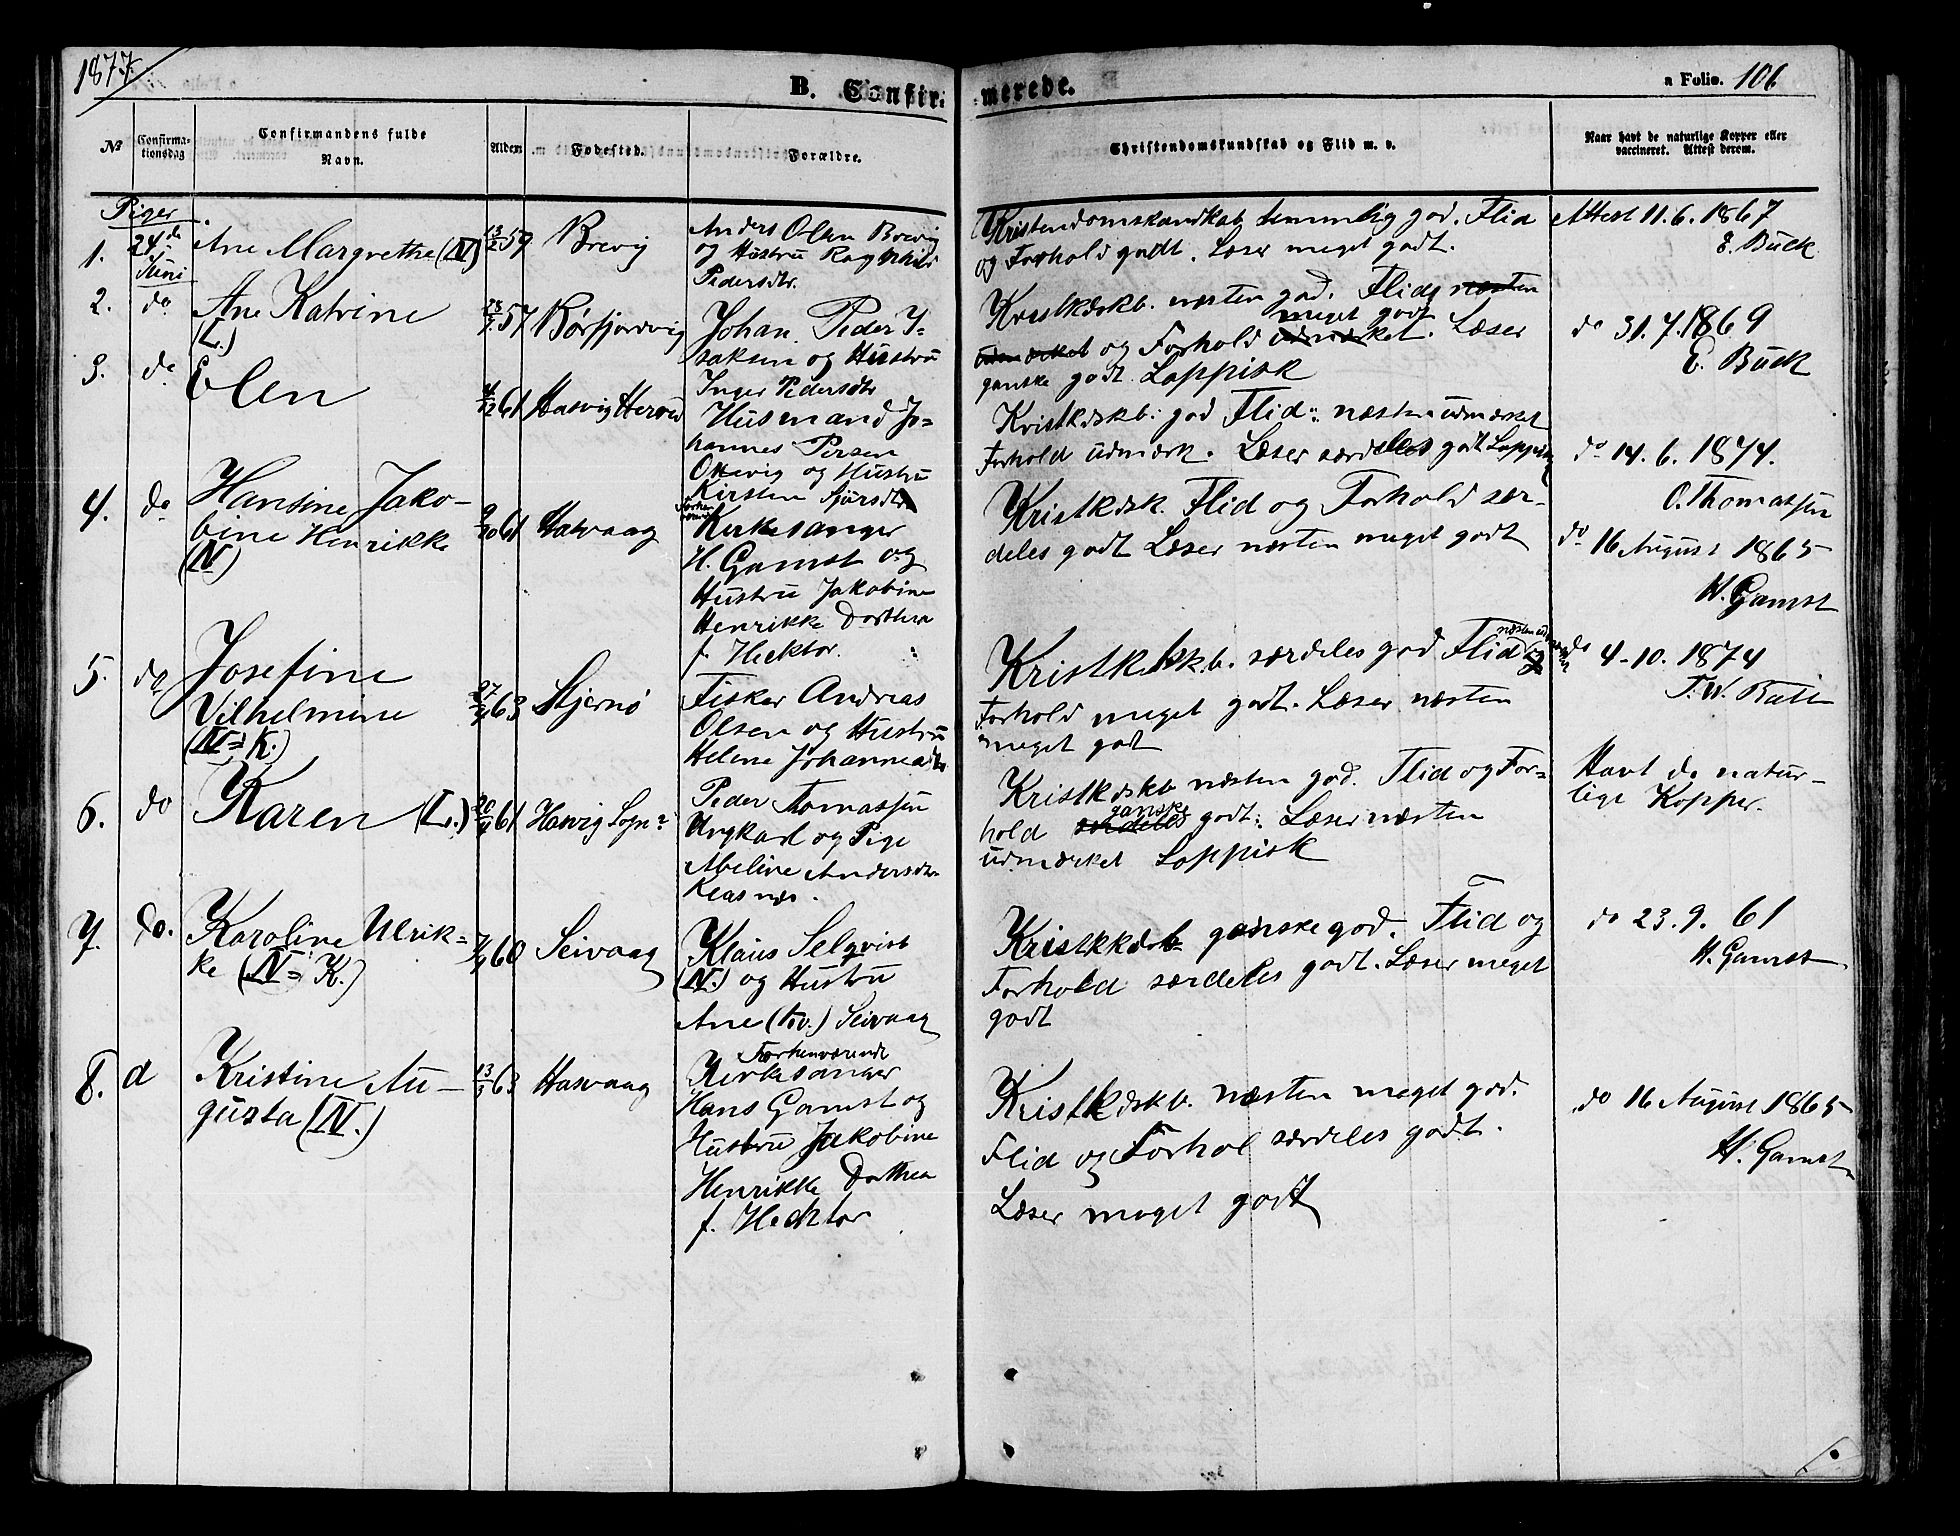 1877
B. Confir-
merede.
a Folio. 106
№
Confirma-
tionsdag
Confirmandens fulde
Navn.
Alder.
Fødested.
Forældre.
Christendomskundskab og Flid m. v.
Naar havt de naturlige Kopper eller
vaccineret. Attest derom.
Piger
1.
24de
Juni
Ane Margrethe (N)
59
Brevig
Anders Olsen Brevig
og Hustru Ragnhild
Pedersdtr.
Kristendomskundskab temmelig god. Flid
og Forhold godt. Læser meget godt.
Attest 11.6.1867
E. Buck
2.
do
Ane Katrine
(L.)
57
Børfjordvig
Johan Peder I-
saksen og Hustru
Inger Pedersdtr
Kristkdskb. næsten god. Flid næsten
meget godt
udmærket og Forhold udmærket. Læser
ganske godt. Lappisk
do 31.7.1869
E. Buck
3.
do
Elen
61
Husmand Jo-
hannes Persen
og Hustru
Kirsten
Kristkdskb: god Flid: næsten udmærket
Forhold udmærk. Læser særdeles godt Lappisk
do 14.6.1874.
O. Thomassen
4.
do
Hansine Jako-
bine Henrikke
(N)
9/10 61
Hasvaag
Forhen
Kirkesanger
H. Gamst og
Hustru Jakobine
Henrikke Dorthea
f. Hecktor.
Kristkdsk. Flid og Forhold sær-
deles godt Læser næsten meget godt
do 16 August 1865
H. Gamst
5.
do
Josefine
Vilhelmine
(N=K.)
63
Stjernø
Fisker Andreas
Olsen og Hustru
Helene Johannesdtr
Kristkdskb. særdeles god Flid næsten
Forhold meget godt. Læser næsten
meget godt
do 4-10. 1874
6.
do
Karen (L.)
61
Hasvig Sogn
Peder Tomassen
Ungkarl og Pige
Abeline Andersdtr
Kristkdskb næsten god. Flid og For-
ganske
hold særdeles godt. Læser næsten
udmærket Lappisk
Havt de natur-
lige Kopper.
7.
do.
Karoline Ulrik-
ke (N=K.)
60
Seivaag
Klaus Selqvist
(N.) og Hustru
Ane (Kv.) Seivaag
Kristkkdskb ganske god. Flid og
Forhold særdeles godt. Læser meget
godt
do 23.9. 61
H. Gamst
8.
d
Kristine Au-
gusta (N.)
13/3 63
Hasvaag
Forhenværende
Kirkesanger
Hans Gamst og
Hustru Jakobine
Henrikke Dorthea
f. Hecktor
Kristkdskb. næsten meget god.
Flid og Forhol særdeles godt.
Læser meget godt
do 16 August 1865
H. Gamst